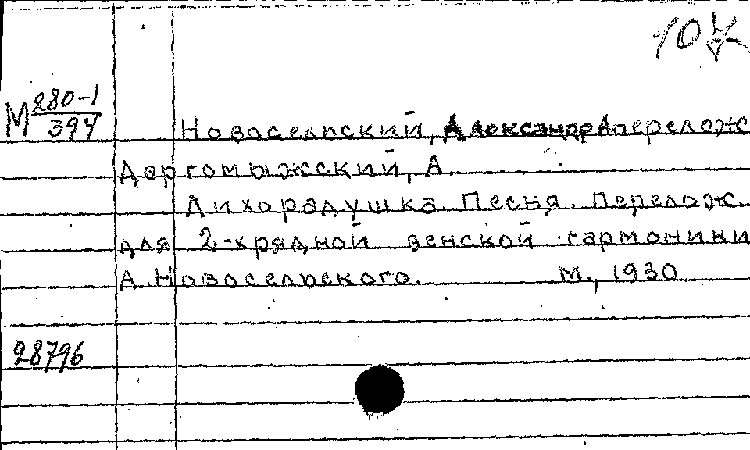 10
М 880-1
394
Новосельский, Александр перелож
Даргомыжский, А.
Лихорадушка. Песня. Перелож.
для 2-хрядной венской гармоники
А.Новосельского. М., 1930
28796